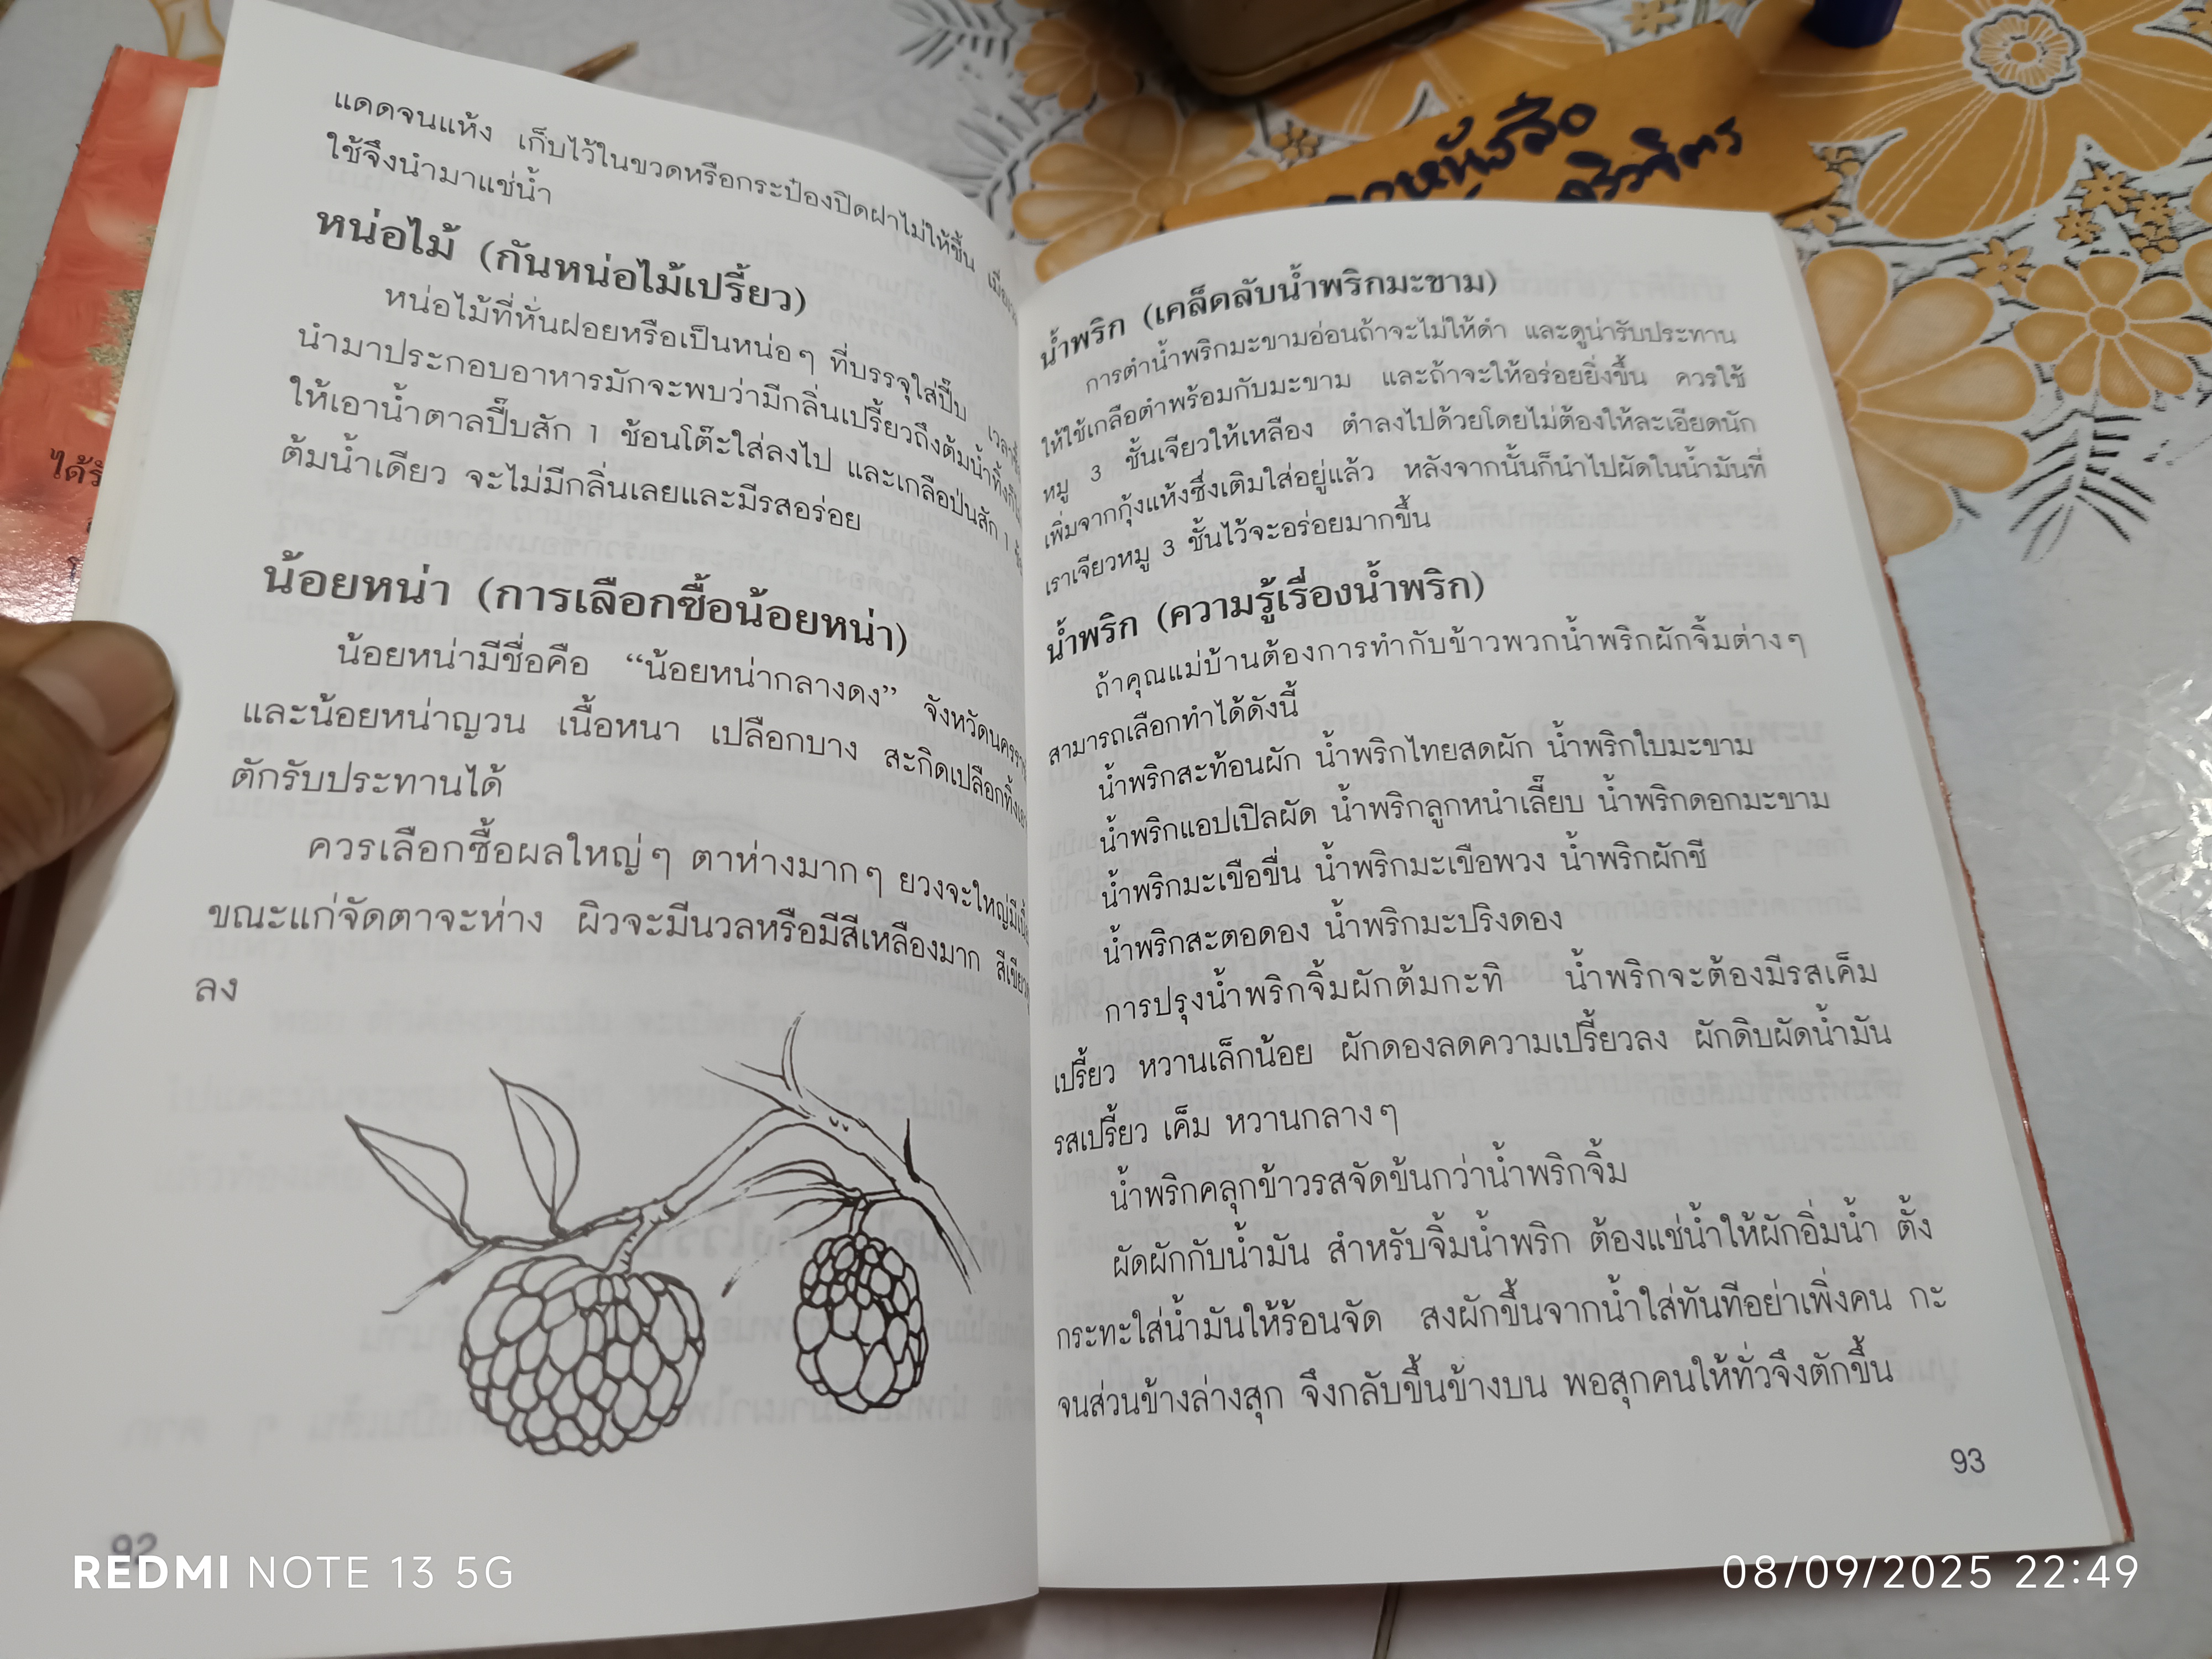 แดดจนแห้ง เก็บไว้ในขวดหรือกระป๋องปิดฝาไม่ให้ชื้น
ใช้จึงนำมาแช่น้ำ
หน่อไม้ (กันหน่อไม้เปรี้ยว)
หน่อไม้ที่หั่นฝอยหรือเป็นหน่อๆ ที่บรรจุใส่ปี๊บ
นำมาประกอบอาหารมักจะพบว่ามีกลิ่นเปรี้ยวถึงต้มน้ำทิ้ง
ให้เอาน้ำตาลปี๊บสัก 1 ช้อนโต๊ะใส่ลงไป และเกลือป่นสัก 1
ต้มน้ำเดียว จะไม่มีกลิ่นเลยและมีรสอร่อย
น้อยหน่า (การเลือกซื้อน้อยหน่า)
น้อยหน่ามีชื่อคือ “น้อยหน่ากลางดง” จังหวัด
และน้อยหน่าญวน เนื้อหนา เปลือกบาง สะกิดเปลือกทิ้ง
ตักรับประทานได้
ควรเลือกซื้อผลใหญ่ๆ ตาห่างมากๆ ยวงจะใหญ่
ขณะแก่จัดตาจะห่าง ผิวจะมีนวลหรือมีสีเหลืองมาก
ลง
92
น้ำพริก (เคล็ดลับน้ำพริกมะขาม)
การตำน้ำพริกมะขามอ่อนถ้าจะไม่ให้ดำ และดูน่ารับประทาน
ให้ใช้เกลือตำพร้อมกับมะขาม และถ้าจะให้อร่อยยิ่งขึ้น ควรใช้
หมู 3 ชั้นเจียวให้เหลือง ตำลงไปด้วยโดยไม่ต้องให้ละเอียดนัก
เพิ่มจากกุ้งแห้งซึ่งเติมใส่อยู่แล้ว หลังจากนั้นก็นำไปผัดในน้ำมันที่
เราเจียวหมู 3 ชั้นไว้จะอร่อยมากขึ้น
น้ำพริก (ความรู้เรื่องน้ำพริก)
ถ้าคุณแม่บ้านต้องการทำกับข้าวพวกน้ำพริกผักจิ้มต่างๆ
สามารถเลือกทำได้ดังนี้
น้ำพริกสะท้อนผัก น้ำพริกไทยสดผัก น้ำพริกใบมะขาม
น้ำพริกแอปเปิลผัด น้ำพริกลูกหนำเลี๊ยบ น้ำพริกดอกมะขาม
น้ำพริกมะเขือขื่น น้ำพริกมะเขือพวง น้ำพริกผักชี
น้ำพริกสะตอดอง น้ำพริกมะปริงดอง
การปรุงน้ำพริกจิ้มผักต้มกะทิ น้ำพริกจะต้องมีรสเค็ม
เปรี้ยว หวานเล็กน้อย ผักดองลดความเปรี้ยวลง ผักดิบผัดน้ำมัน
รสเปรี้ยว เค็ม หวานกลางๆ
น้ำพริกคลุกข้าวรสจัดข้นกว่าน้ำพริกจิ้ม
ผัดผักกับน้ำมัน สำหรับจิ้มน้ำพริก ต้องแช่น้ำให้ผักอิ่มน้ำ ตั้ง
กระทะใส่น้ำมันให้ร้อนจัด สงผักขึ้นจากน้ำใส่ทันทีอย่าเพิ่งคน กะ
จนส่วนข้างล่างสุก จึงกลับขึ้นข้างบน พอสุกคนให้ทั่วจึงตักขึ้น
93
REDMI NOTE 13 5G
08/09/2025 22:49